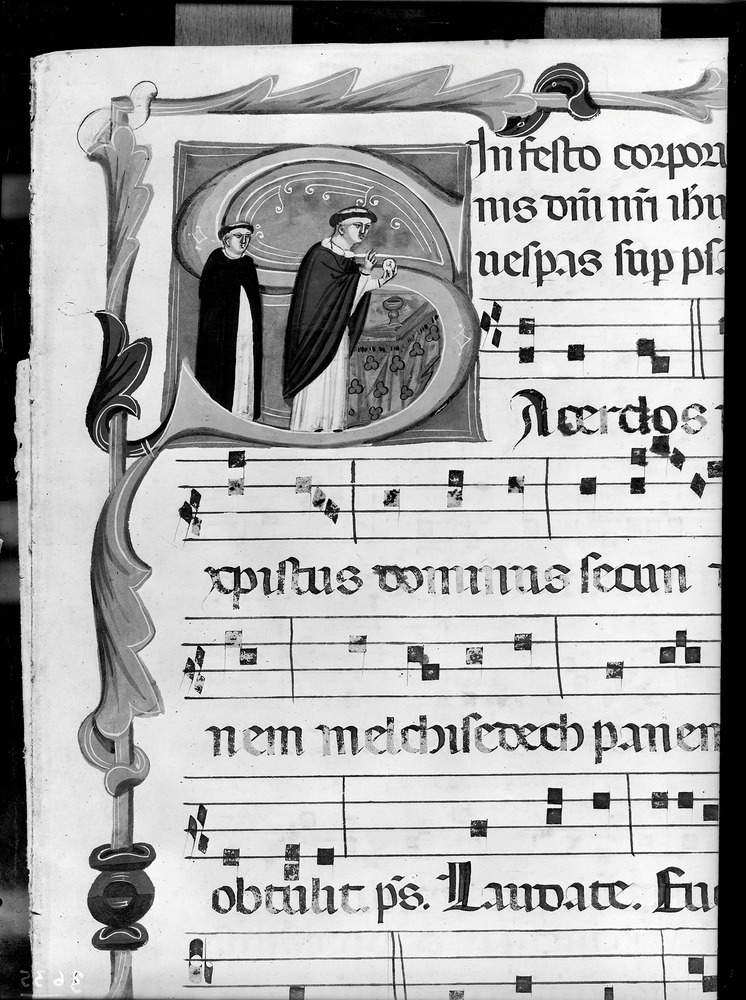 In festo corpori
nis dn̄i nr̄i ihu
uespas sup ps.
Acerdos
xpistus dominus secun
nem melchisedech panem
obtulit. ps. Laudate. Euo